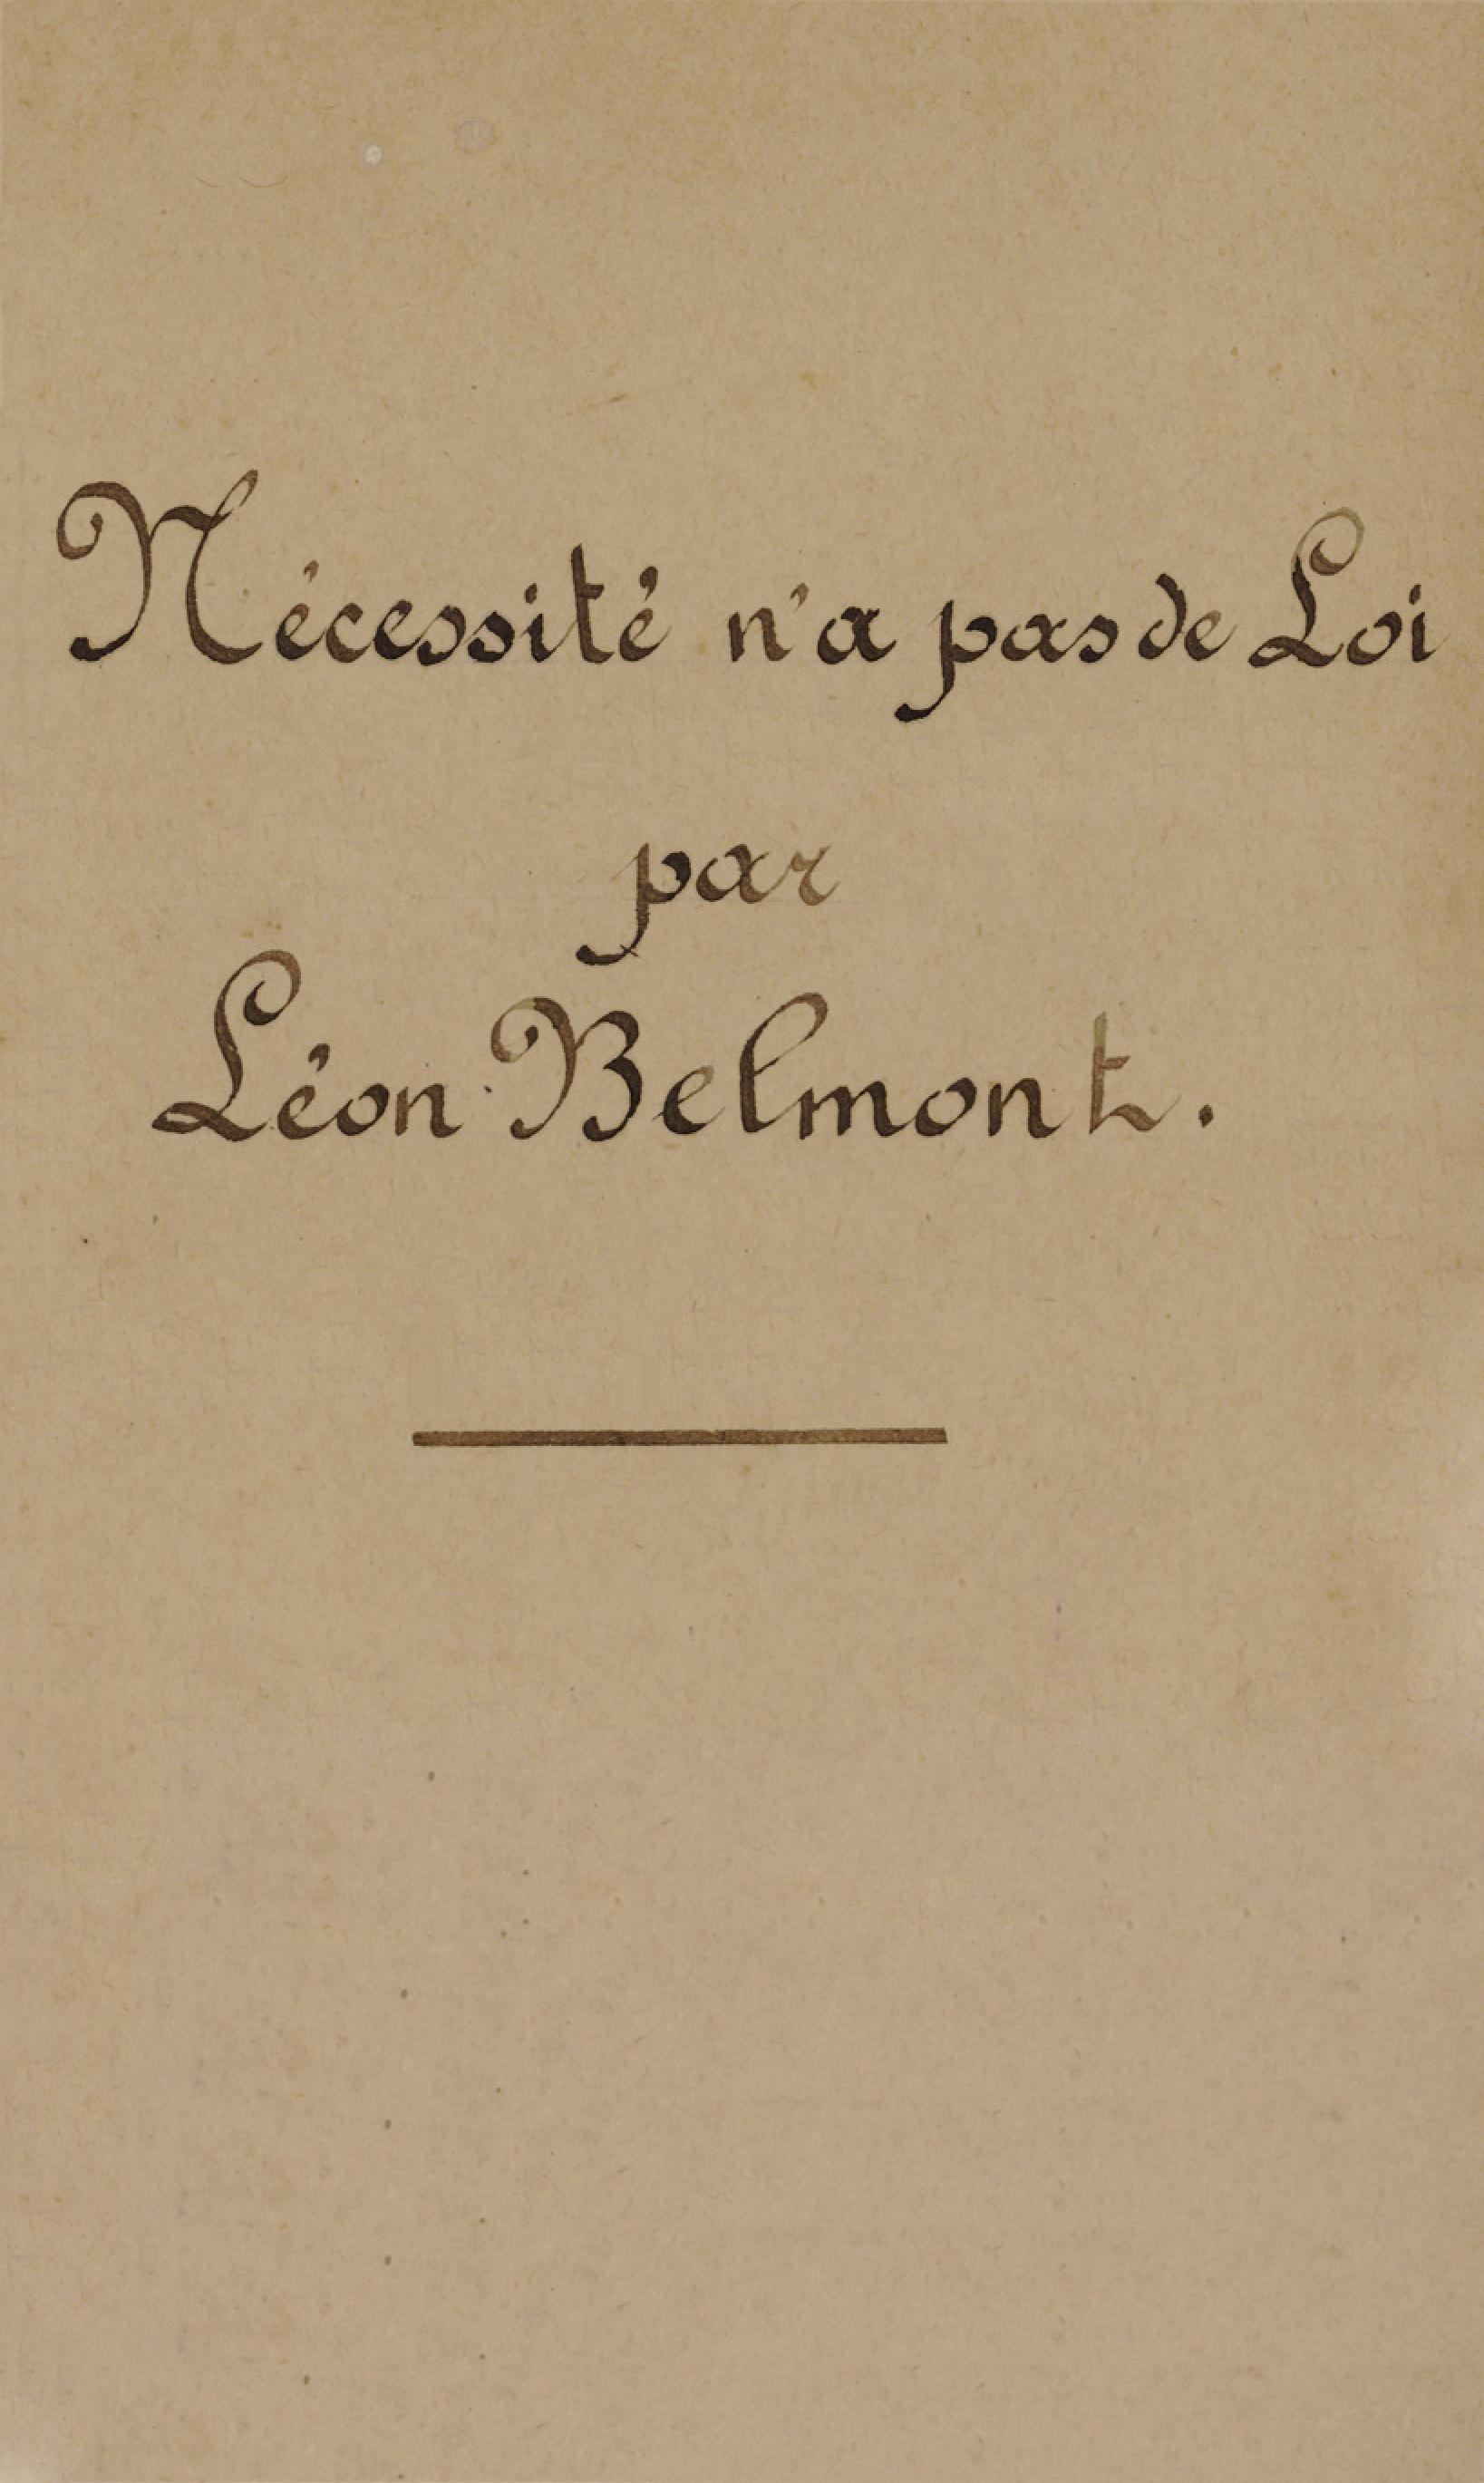 Nécessité n'a pas de Loi
par
Léon Belmont.